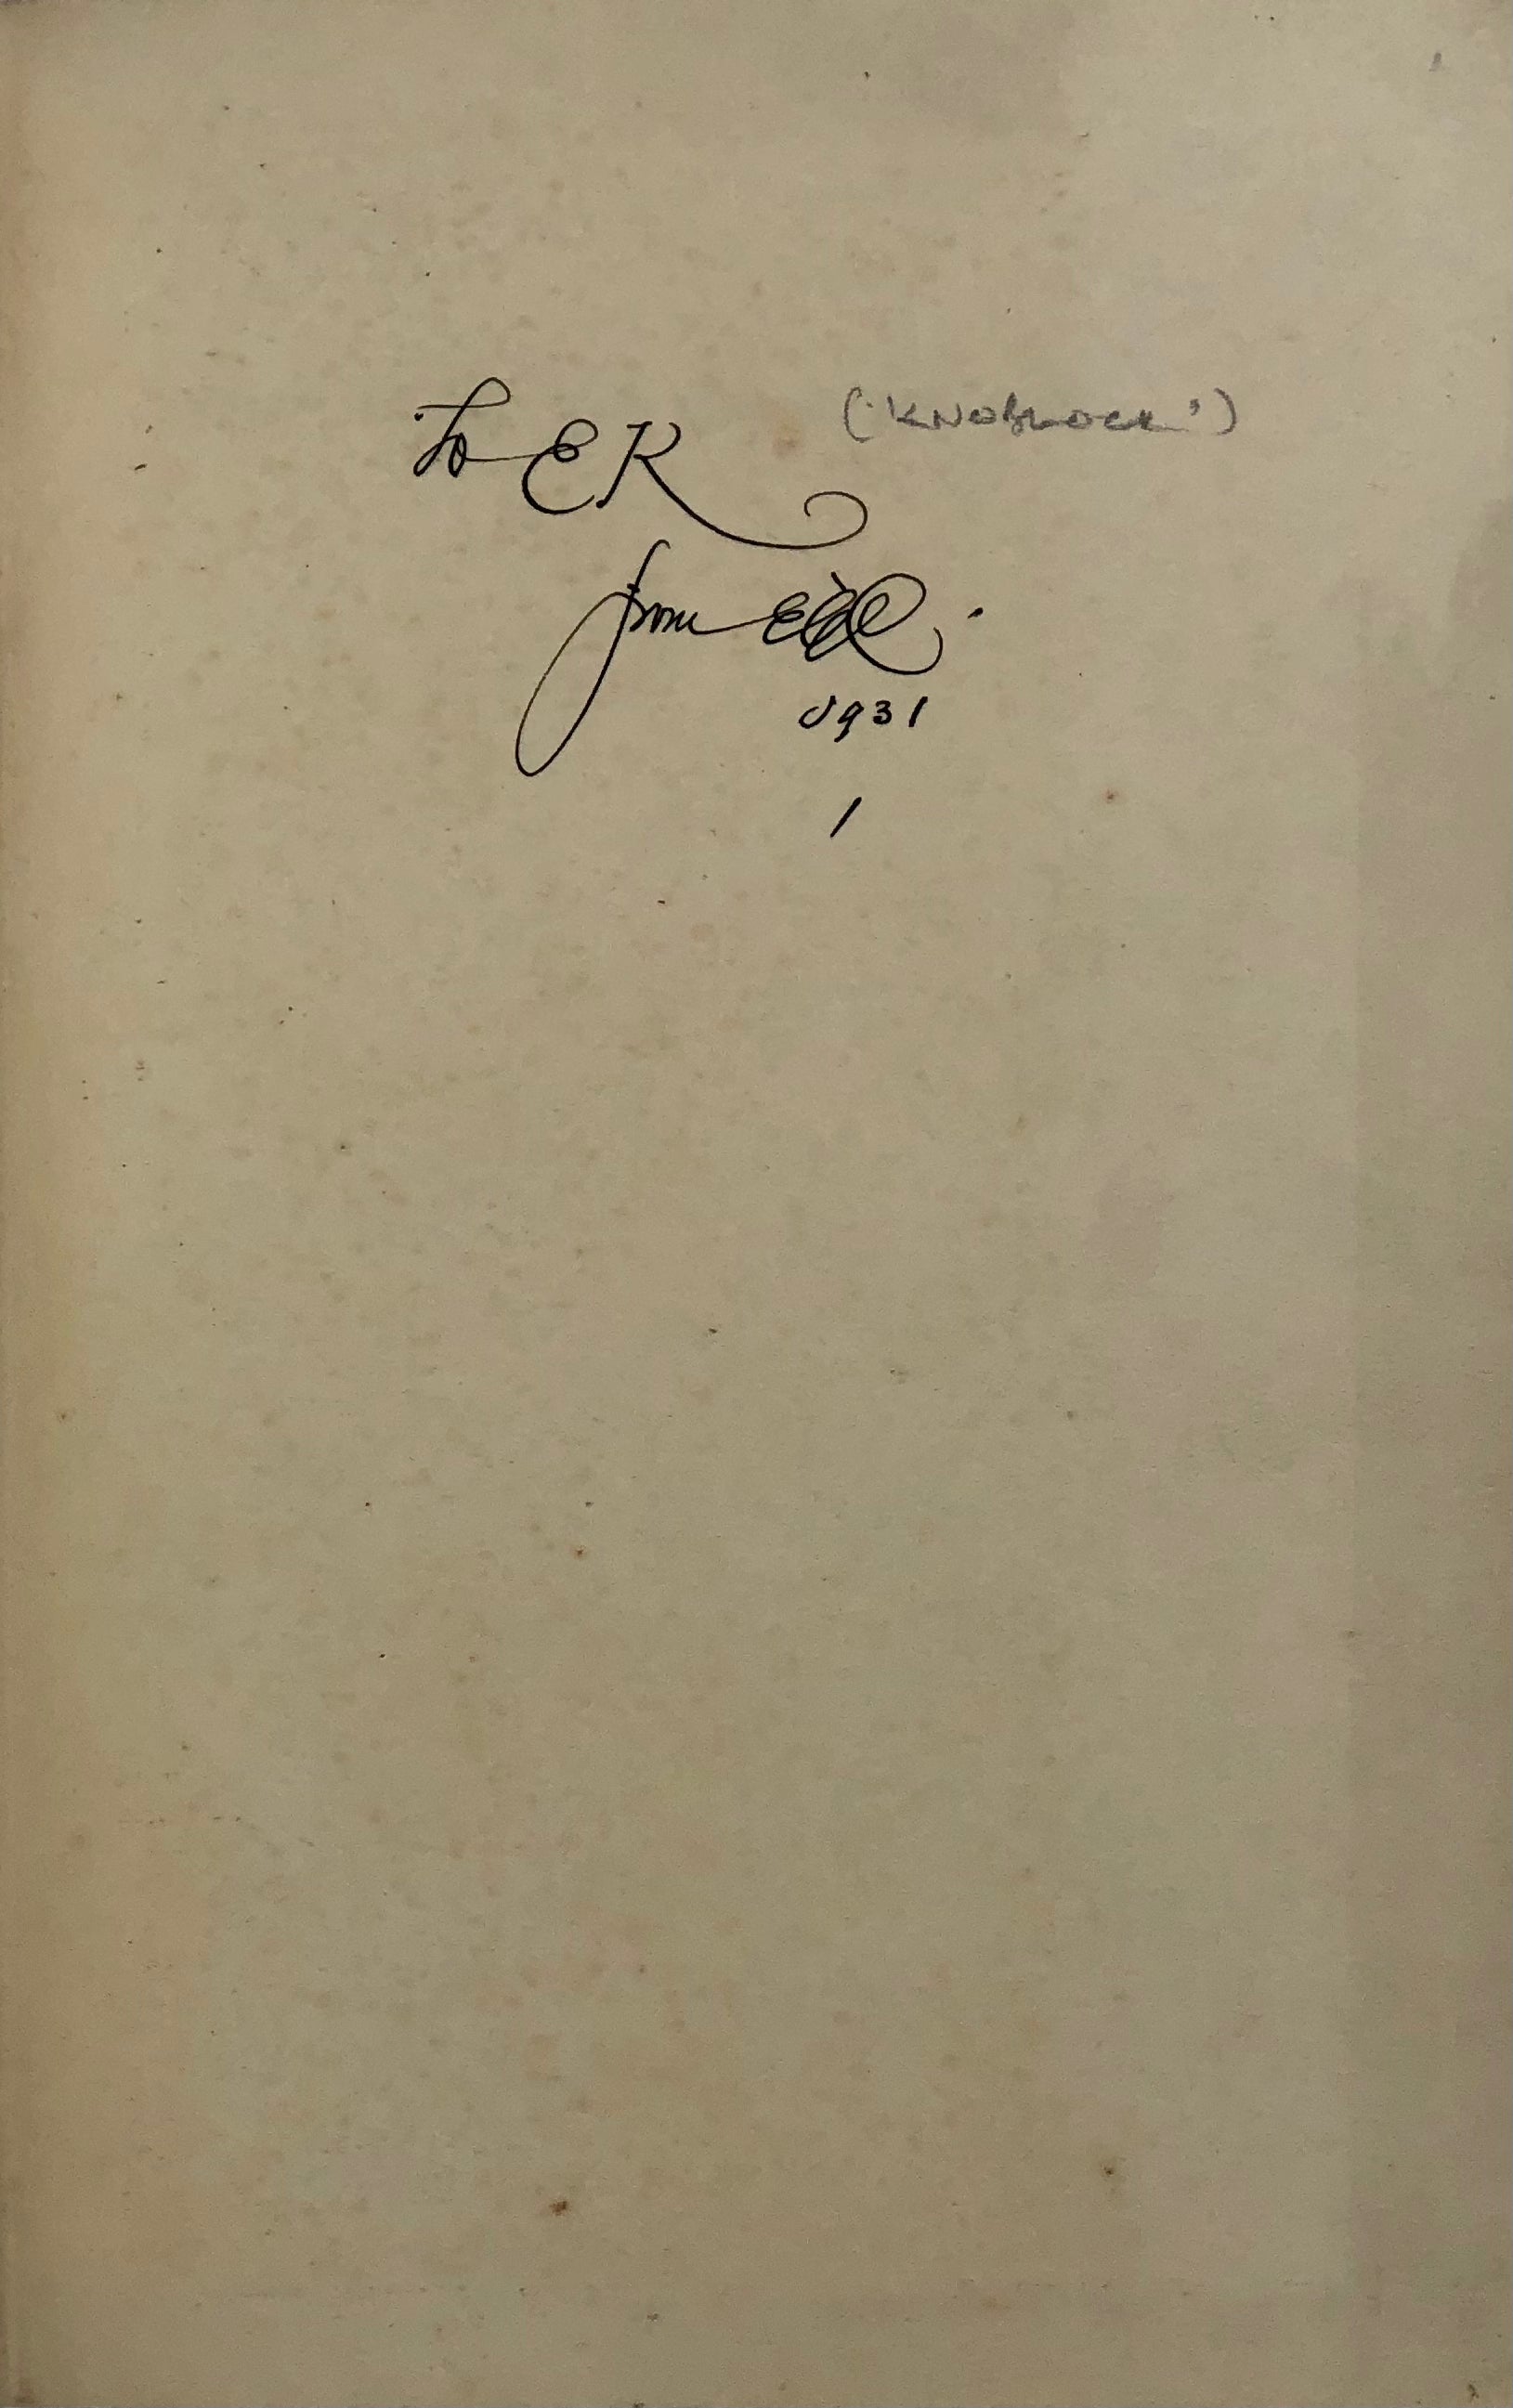 to EK ('KNOBLOCK')
from EGC.
1931
/